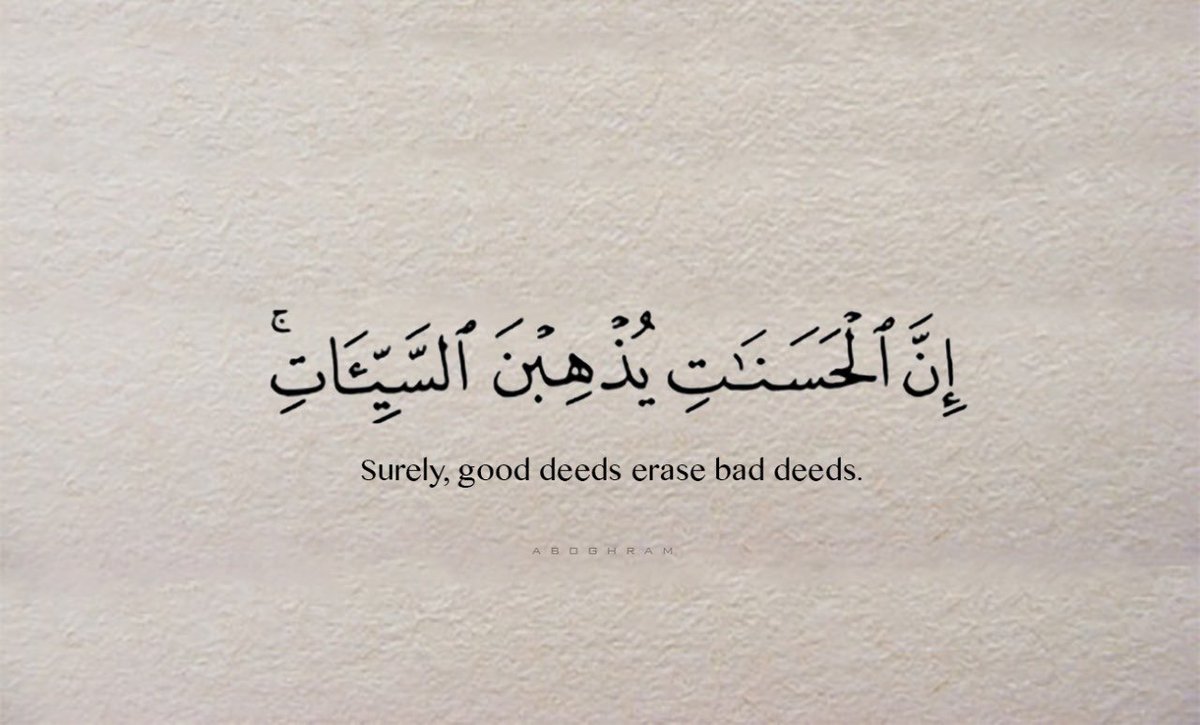 إِنَّ ٱلْحَسَنَـٰتِ يُذْهِبْنَ ٱلسَّيِّـَٔاتِ ۚ
Surely, good deeds erase bad deeds.
ABOGHRAM